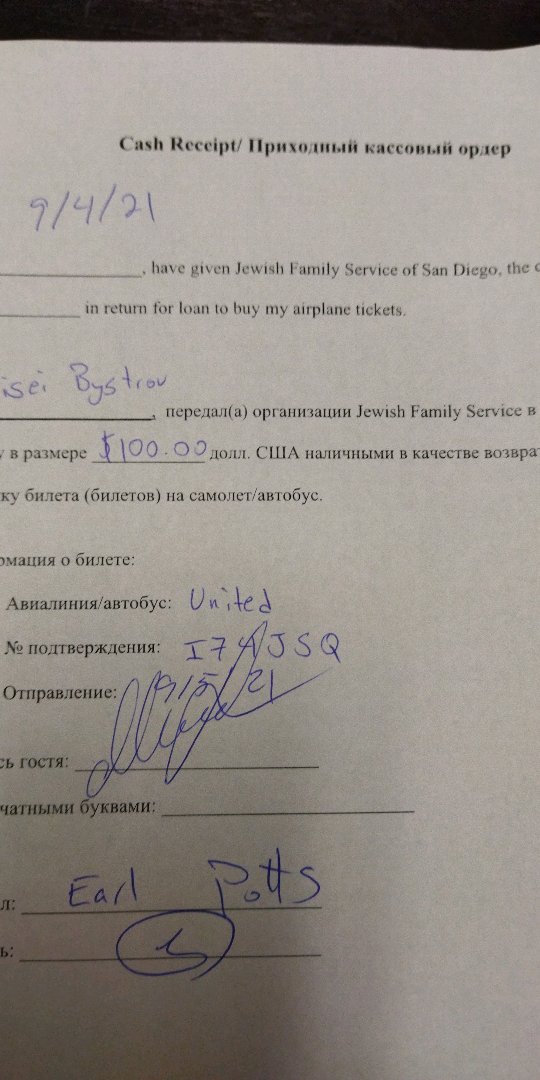 Cash Receipt/ Приходный кассовый ордер
9/4/21
, have given Jewish Family Service of San Diego, the
in return for loan to buy my airplane tickets.
isei Bystrov
, передал(а) организации Jewish Family Service в
у в размере $100.00 долл. США наличными в качестве возврат
ку билета (билетов) на самолет/автобус.
рмация о билете:
Авиалиния/автобус: United
№ подтверждения: I74JSQ
Отправление: 9/5/21
сь гостя:
чатными буквами:
л: Earl Potts
ь: